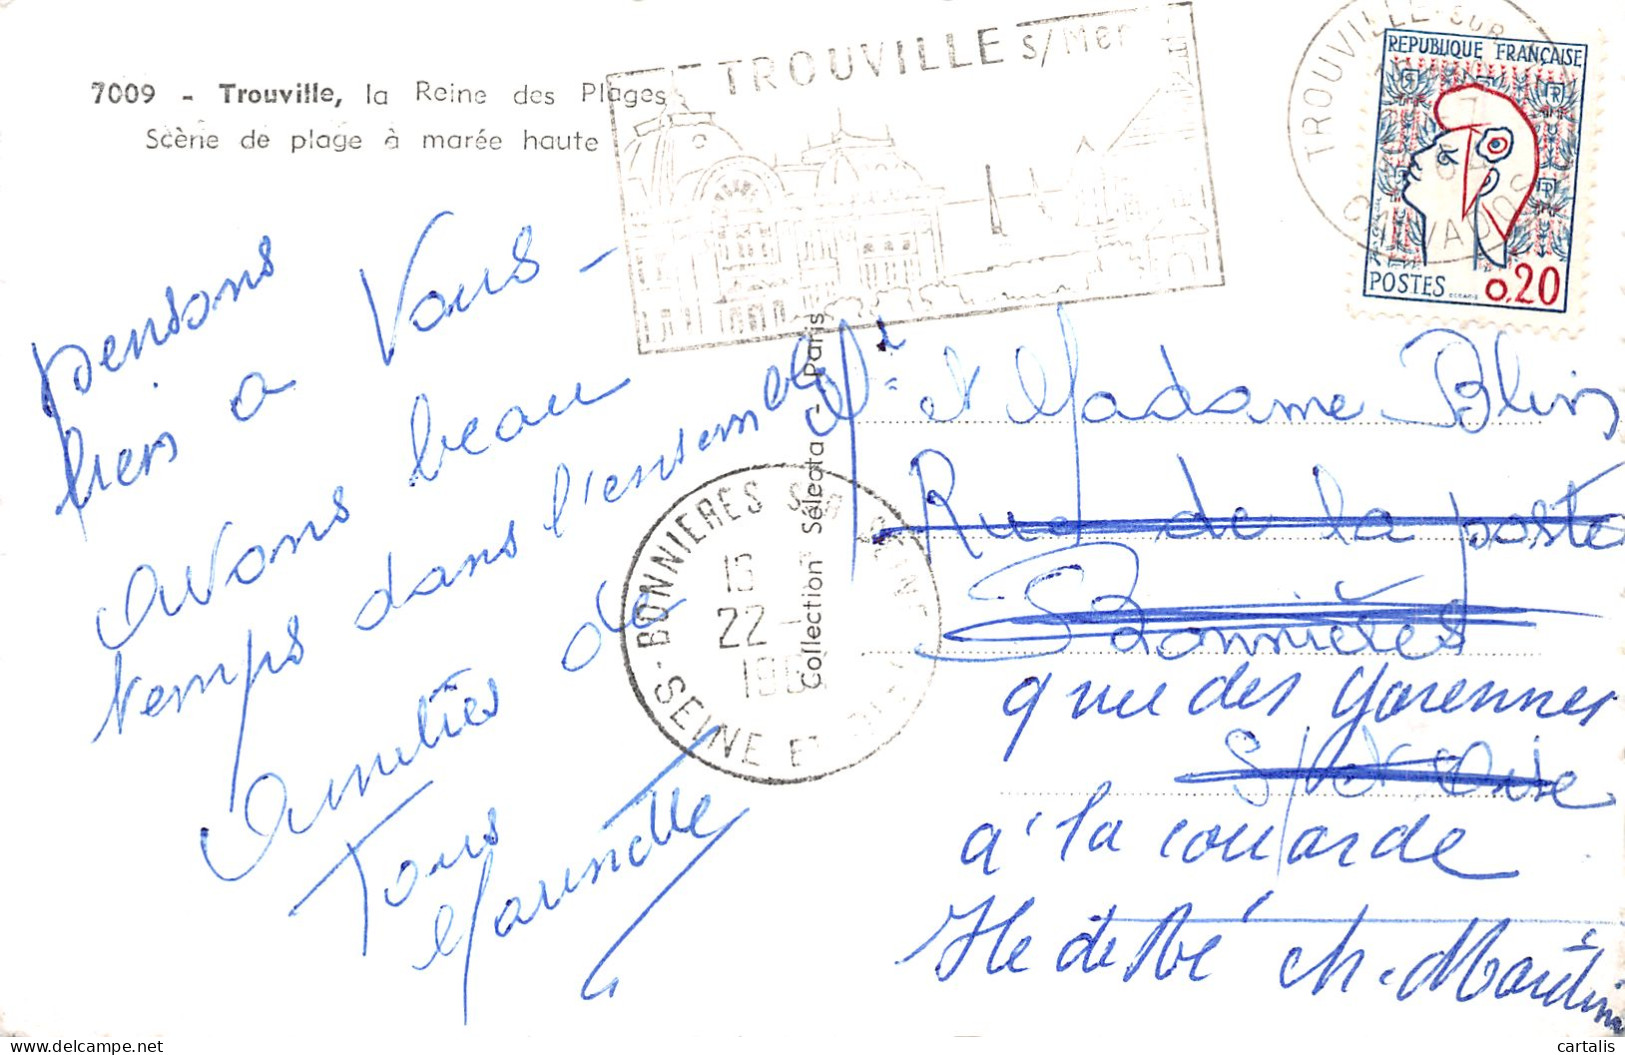 7009 - Trouville, la Reine des Plages
Scène de plage à marée haute
TROUVILLE S/Mer
TROUVILLE-SUR
CALVADOS
REPUBLIQUE FRANÇAISE
POSTES 0,20
pensons
bien a Vous -
avons beau
temps dans l'ensemble
Amitiés de
Tous
Marinette
Collection Sélecta - Paris
BONNIERES SUR SEINE
16
22 -
196
SEINE ET OISE
Mr et Madame Blin
Rue de la poste
Bonnières
9 rue des Garennes
S/et Oise
à la couarde
Ile de Ré ch. Maritime
cartalis